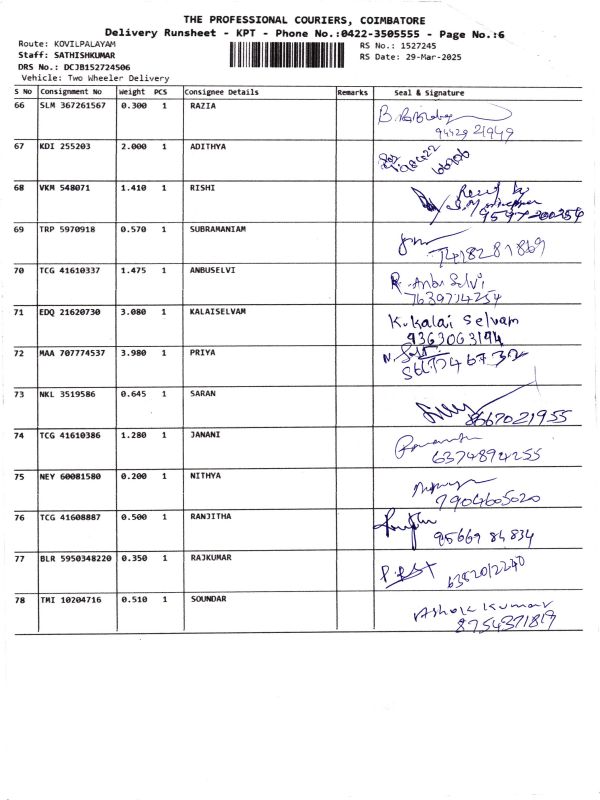 THE PROFESSIONAL COURIERS, COIMBATORE
Delivery Runsheet - KPT - Phone No.:0422-3505555 - Page No.:6
Route: KOVILPALAYAM
RS No.: 1527245
Staff: SATHISHKUMAR
RS Date: 29-Mar-2025
DRS No.: DCJB152724506
Vehicle: Two Wheeler Delivery
S No Consignment No Weight PCS Consignee Details Remarks Seal & Signature
66 SLM 367261567 0.300 1 RAZIA
67 KDI 255203 2.000 1 ADITHYA
68 VKM 548071 1.410 1 RISHI
69 TRP 5970918 0.570 1 SUBRAMANIAM
7418281869
70 TCG 41610337 1.475 1 ANBUSELVI
R. Anbu Selvi
7639714254
71 EDQ 21620730 3.080 1 KALAISELVAM
K. Kalai Selvam
9363063194
72 MAA 707774537 3.980 1 PRIYA
73 NKL 3519586 0.645 1 SARAN
8667021955
74 TCG 41610386 1.280 1 JANANI
6374894255
75 NEY 60081580 0.200 1 NITHYA
7904605020
76 TCG 41608887 0.500 1 RANJITHA
95669 84834
77 BLR 5950348220 0.350 1 RAJKUMAR
6382012240
78 TMI 10204716 0.510 1 SOUNDAR
Ashok Kumar
8754371819